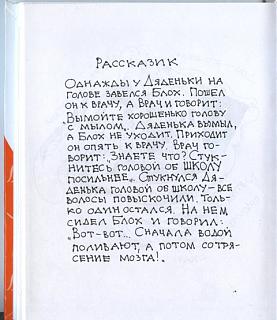 Рассказик
Однажды у Дяденьки на
голове завелся Блох. Пошел
он к врачу, а Врач и говорит:
„Вымойте хорошенько голову
с мылом„. Дяденька вымыл,
а Блох не уходит. Приходит
он опять к врачу. Врач го-
ворит: „Знаете что? Стук-
нитесь головой об школу
посильнее„. Стукнулся Дя-
денька головой об школу — все
волосы повыскочили. Толь-
ко один остался. На нем
сидел Блох и говорил:
„Вот-вот... Сначала водой
поливают, а потом сотря-
сение мозга!„